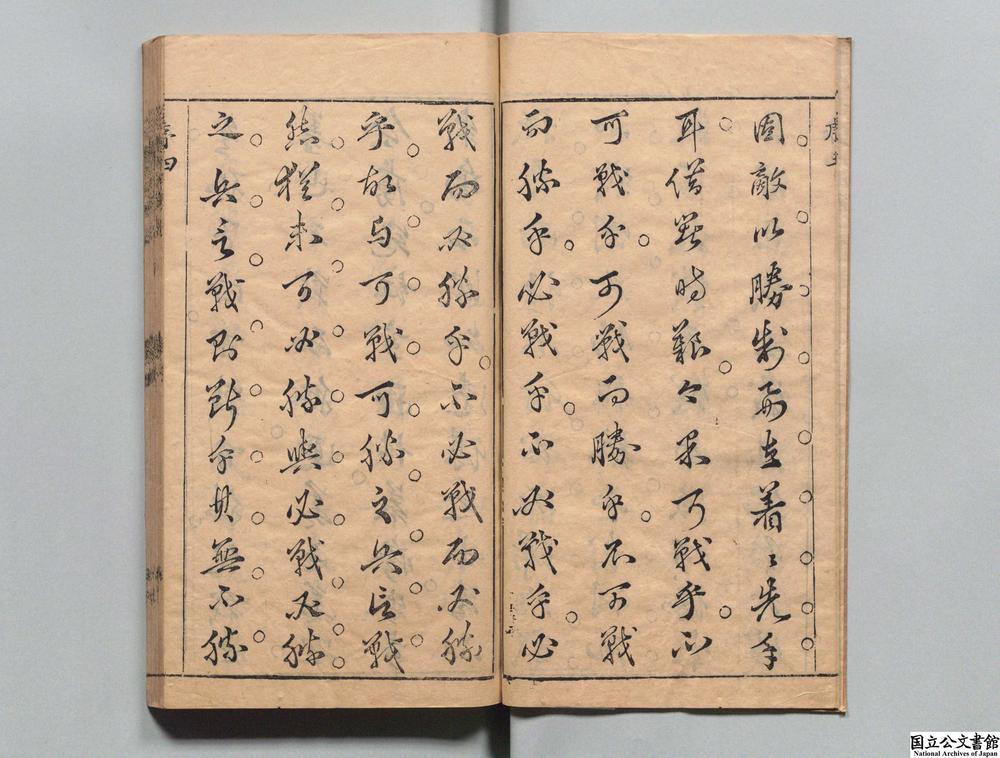 因敵以勝制在着〻先手
耳借箸時艱今果可戰乎不
可戰乎可戰而勝乎不可戰
而勝乎必戰乎不必戰乎必
戰而必勝乎不必戰而必勝
乎故与可戰可勝之兵言戰
然猶未可必勝與必戰必勝
之兵言戰則斷乎其無不勝
序四
国立公文書館
National Archives of Japan